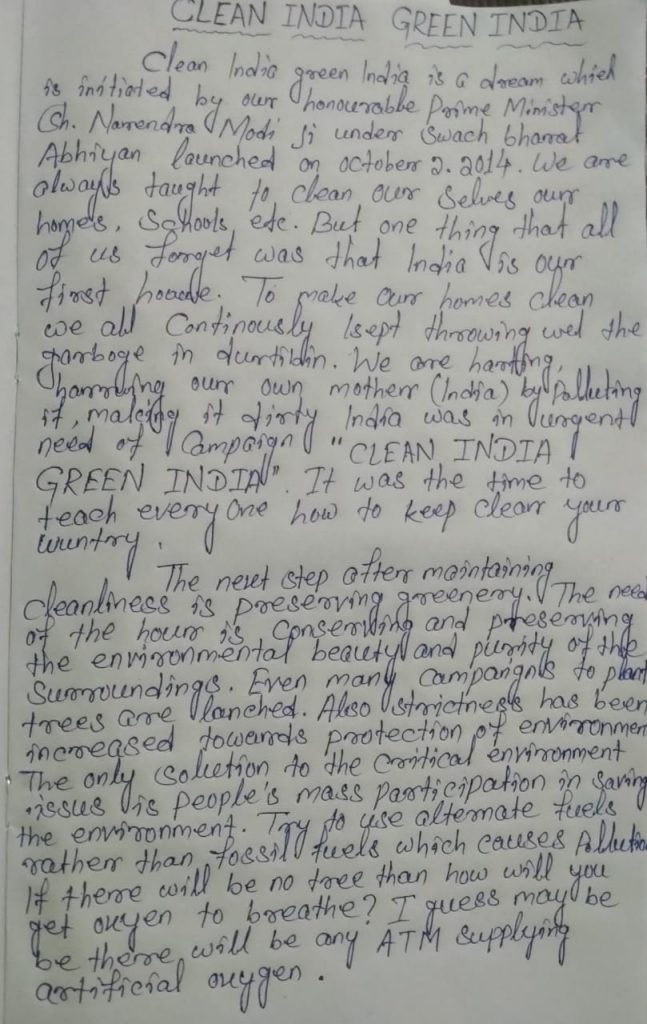 CLEAN INDIA GREEN INDIA
Clean India green India is a dream which
is initiated by our honourable Prime Minister
Sh. Narendra Modi Ji under Swach bharat
Abhiyan launched on october 2. 2014. We are
always taught to clean our selves our
homes, Schools, etc. But one thing that all
of us forget was that India is our
first house. To make our homes clean
we all Continously kept throwing wed the
garboge in durtibin. We are harting,
harrming our own mother (India) by Polluting
it, making it dirty India was in urgent
need of Campaign "CLEAN INDIA
GREEN INDIA". It was the time to
teach every one how to keep clean your
country.
The next step after maintaining
cleanliness is preserving greenery. The need
of the hour is Conserving and preserving
the environmental beauty and purity of the
Surroundings. Even many campaigns to plant
trees are lanched. Also strictness has been
increased towards protection of environmen
The only solution to the critical environment
issus is people's mass participation in saving
the environment. Try to use alternate fuels
rather than fossil fuels which causes Pollutio
If there will be no tree than how will you
get oxyen to breathe? I guess may be
be there will be any ATM supplying
artificial oxygen.